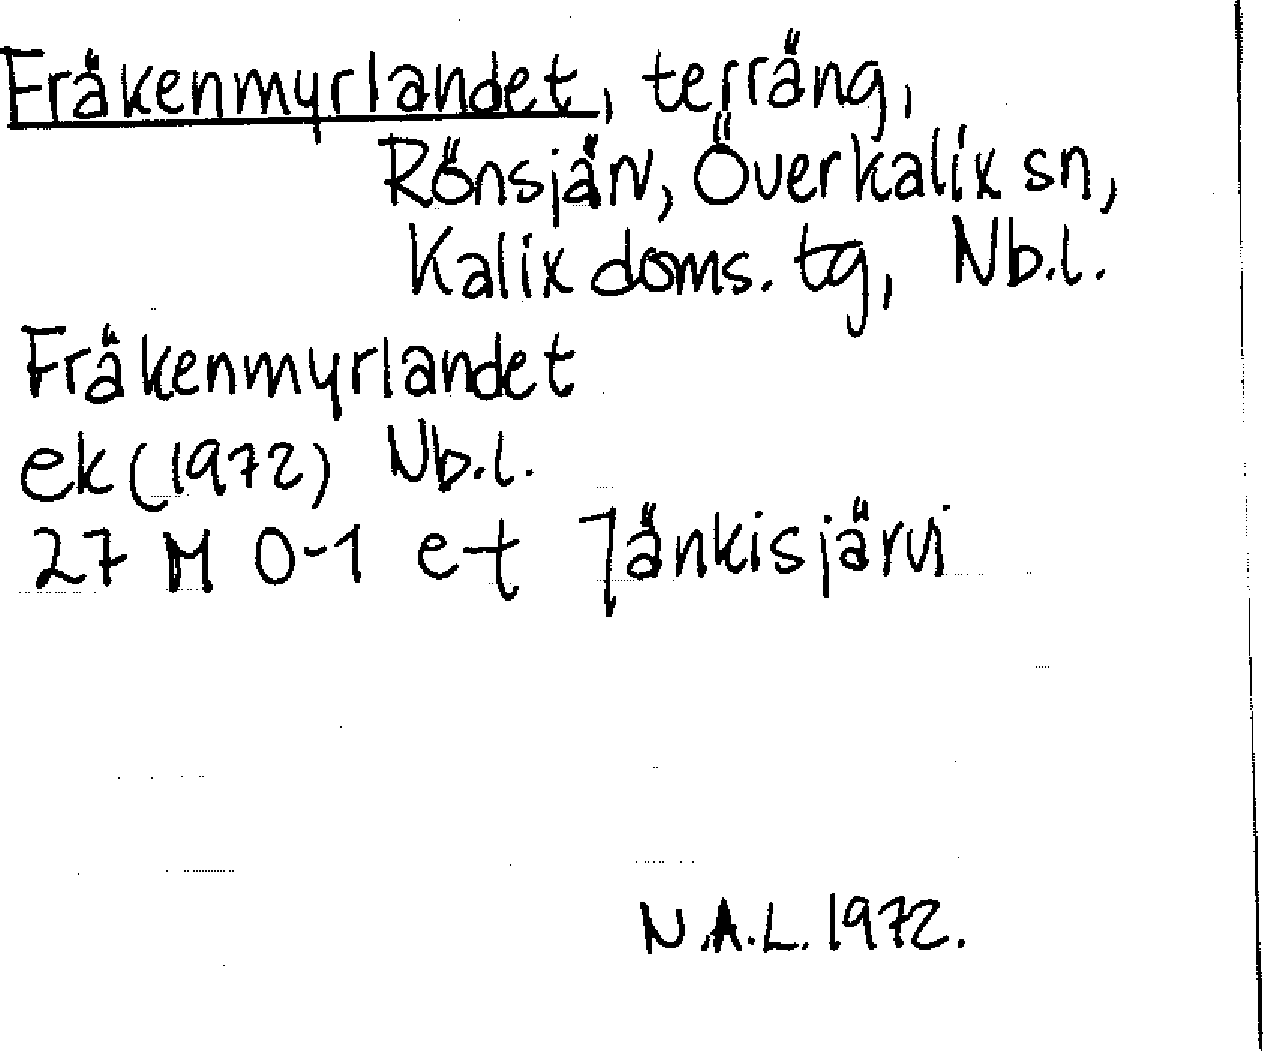 Fräkenmyrlandet, terräng,
Rönsjärv, Överkalix sn,
Kalix doms. tg, Nb.l.
Fräkenmyrlandet
ek (1972) Nb.l.
27 M 0-1 e-t Jänkisjärvi
N.A.L. 1972.